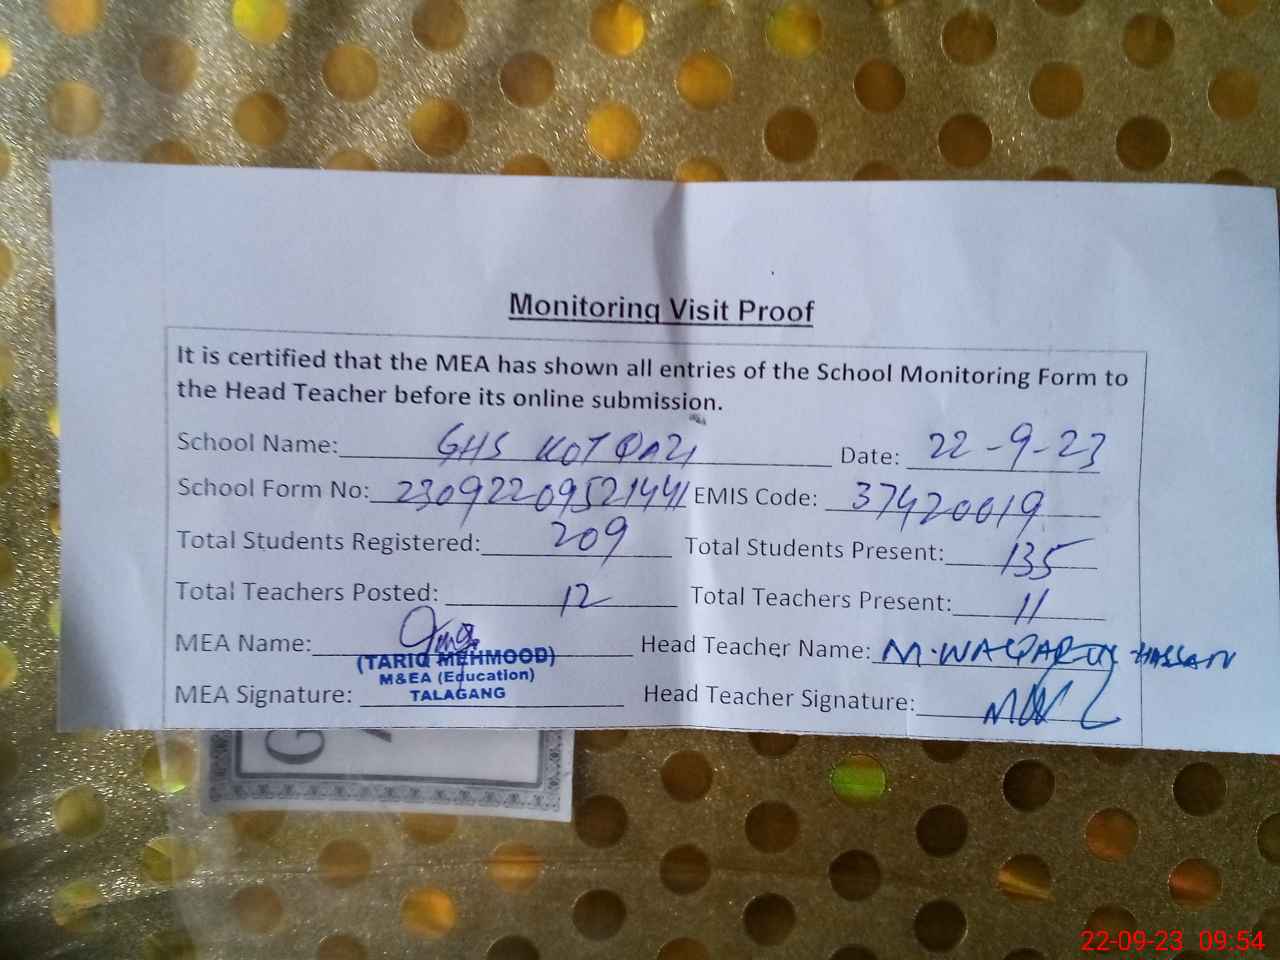 Monitoring Visit Proof
It is certified that the MEA has shown all entries of the School Monitoring Form to
the Head Teacher before its online submission.
School Name: GHS KOT QAZI Date: 22-9-23
School Form No: 23092209521441 EMIS Code: 37420019
Total Students Registered: 209 Total Students Present: 135
Total Teachers Posted: 12 Total Teachers Present: 11
MEA Name: Head Teacher Name: M.WAQAR UL HASSAN
(TARIQ MEHMOOD)
M&EA (Education)
MEA Signature: TALAGANG Head Teacher Signature:
G
22-09-23 09:54